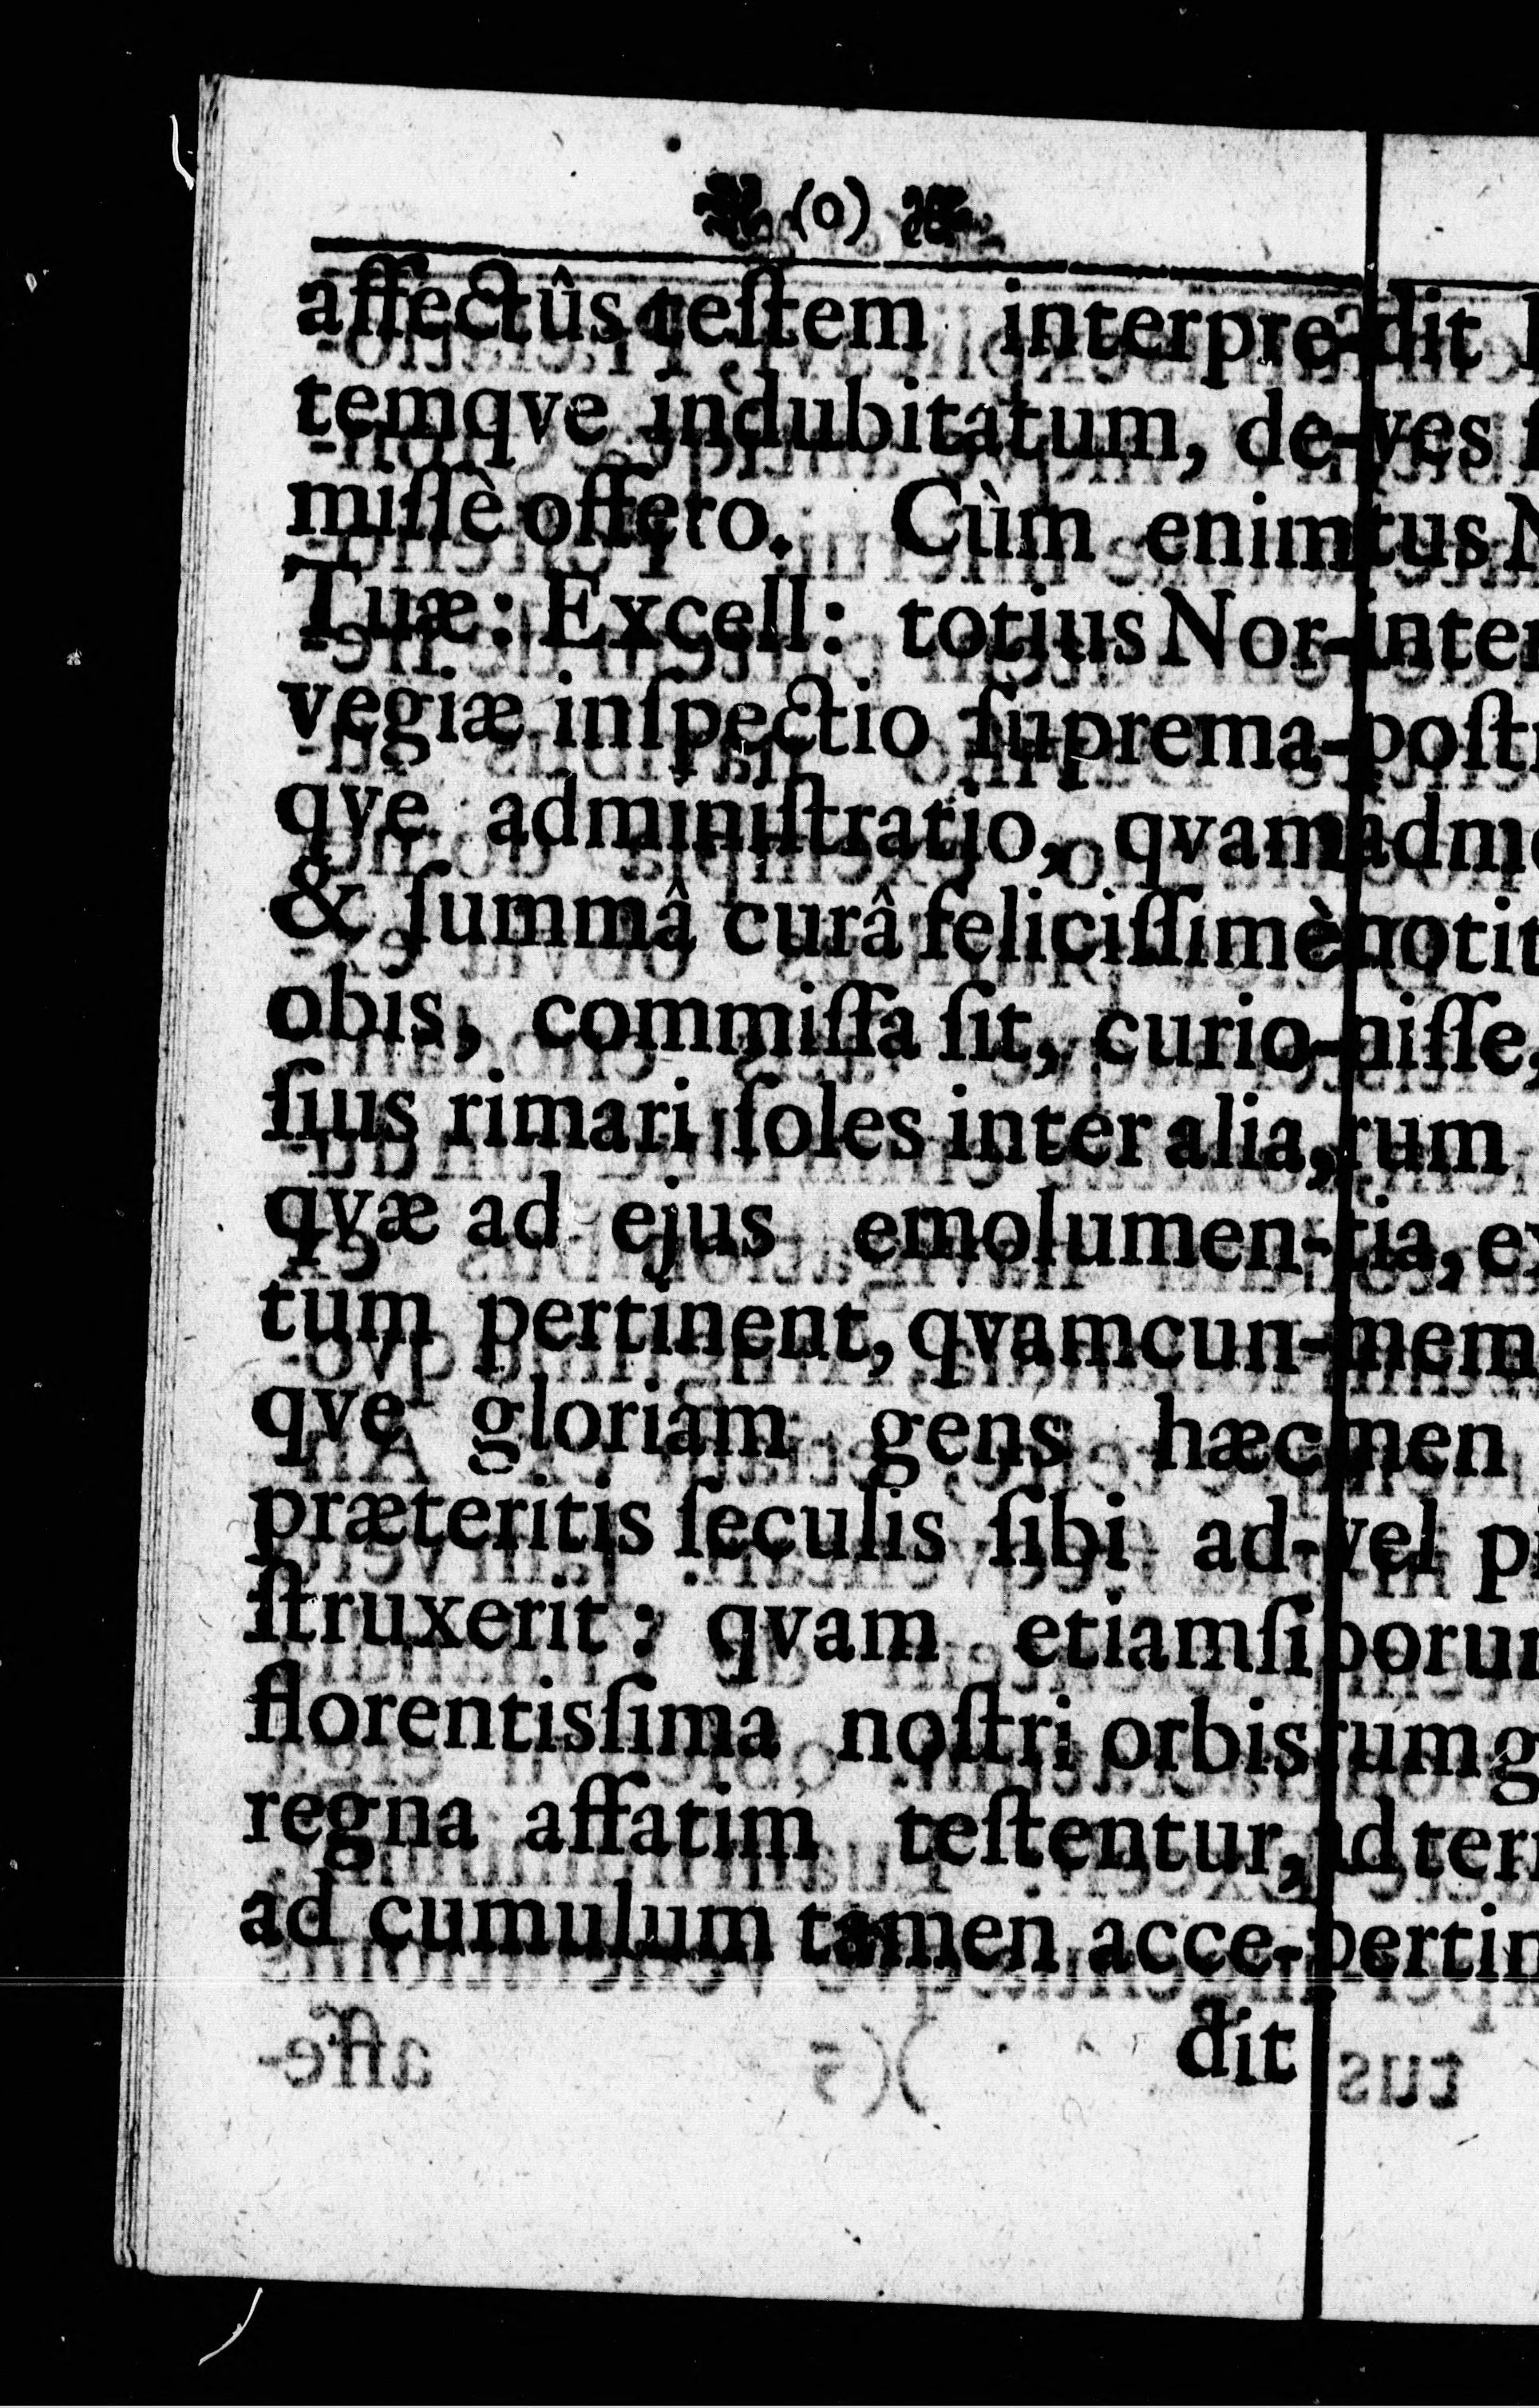 (o)
affectûs teſtem interpre-
temqve indubitatum, de-
miſſè offero. Cùm enim
Tuæ: Excell: totius Nor-
vegiæ inſpectio ſuprema-
qve adminiſtratio, qvam
& ſummâ curâ feliciſſimè
obis, commiſſa ſit, curio-
ſius rimari ſoles inter alia,
qvæ ad ejus emolumen-
tum pertinent, qvamcun-
qve gloriam gens hæc
præteritis ſeculis ſibi ad-
ſtruxerit: qvam etiamſi
florentisſima noſtri orbis
regna affatim teſtentur,
ad cumulum tamen acce-
dit